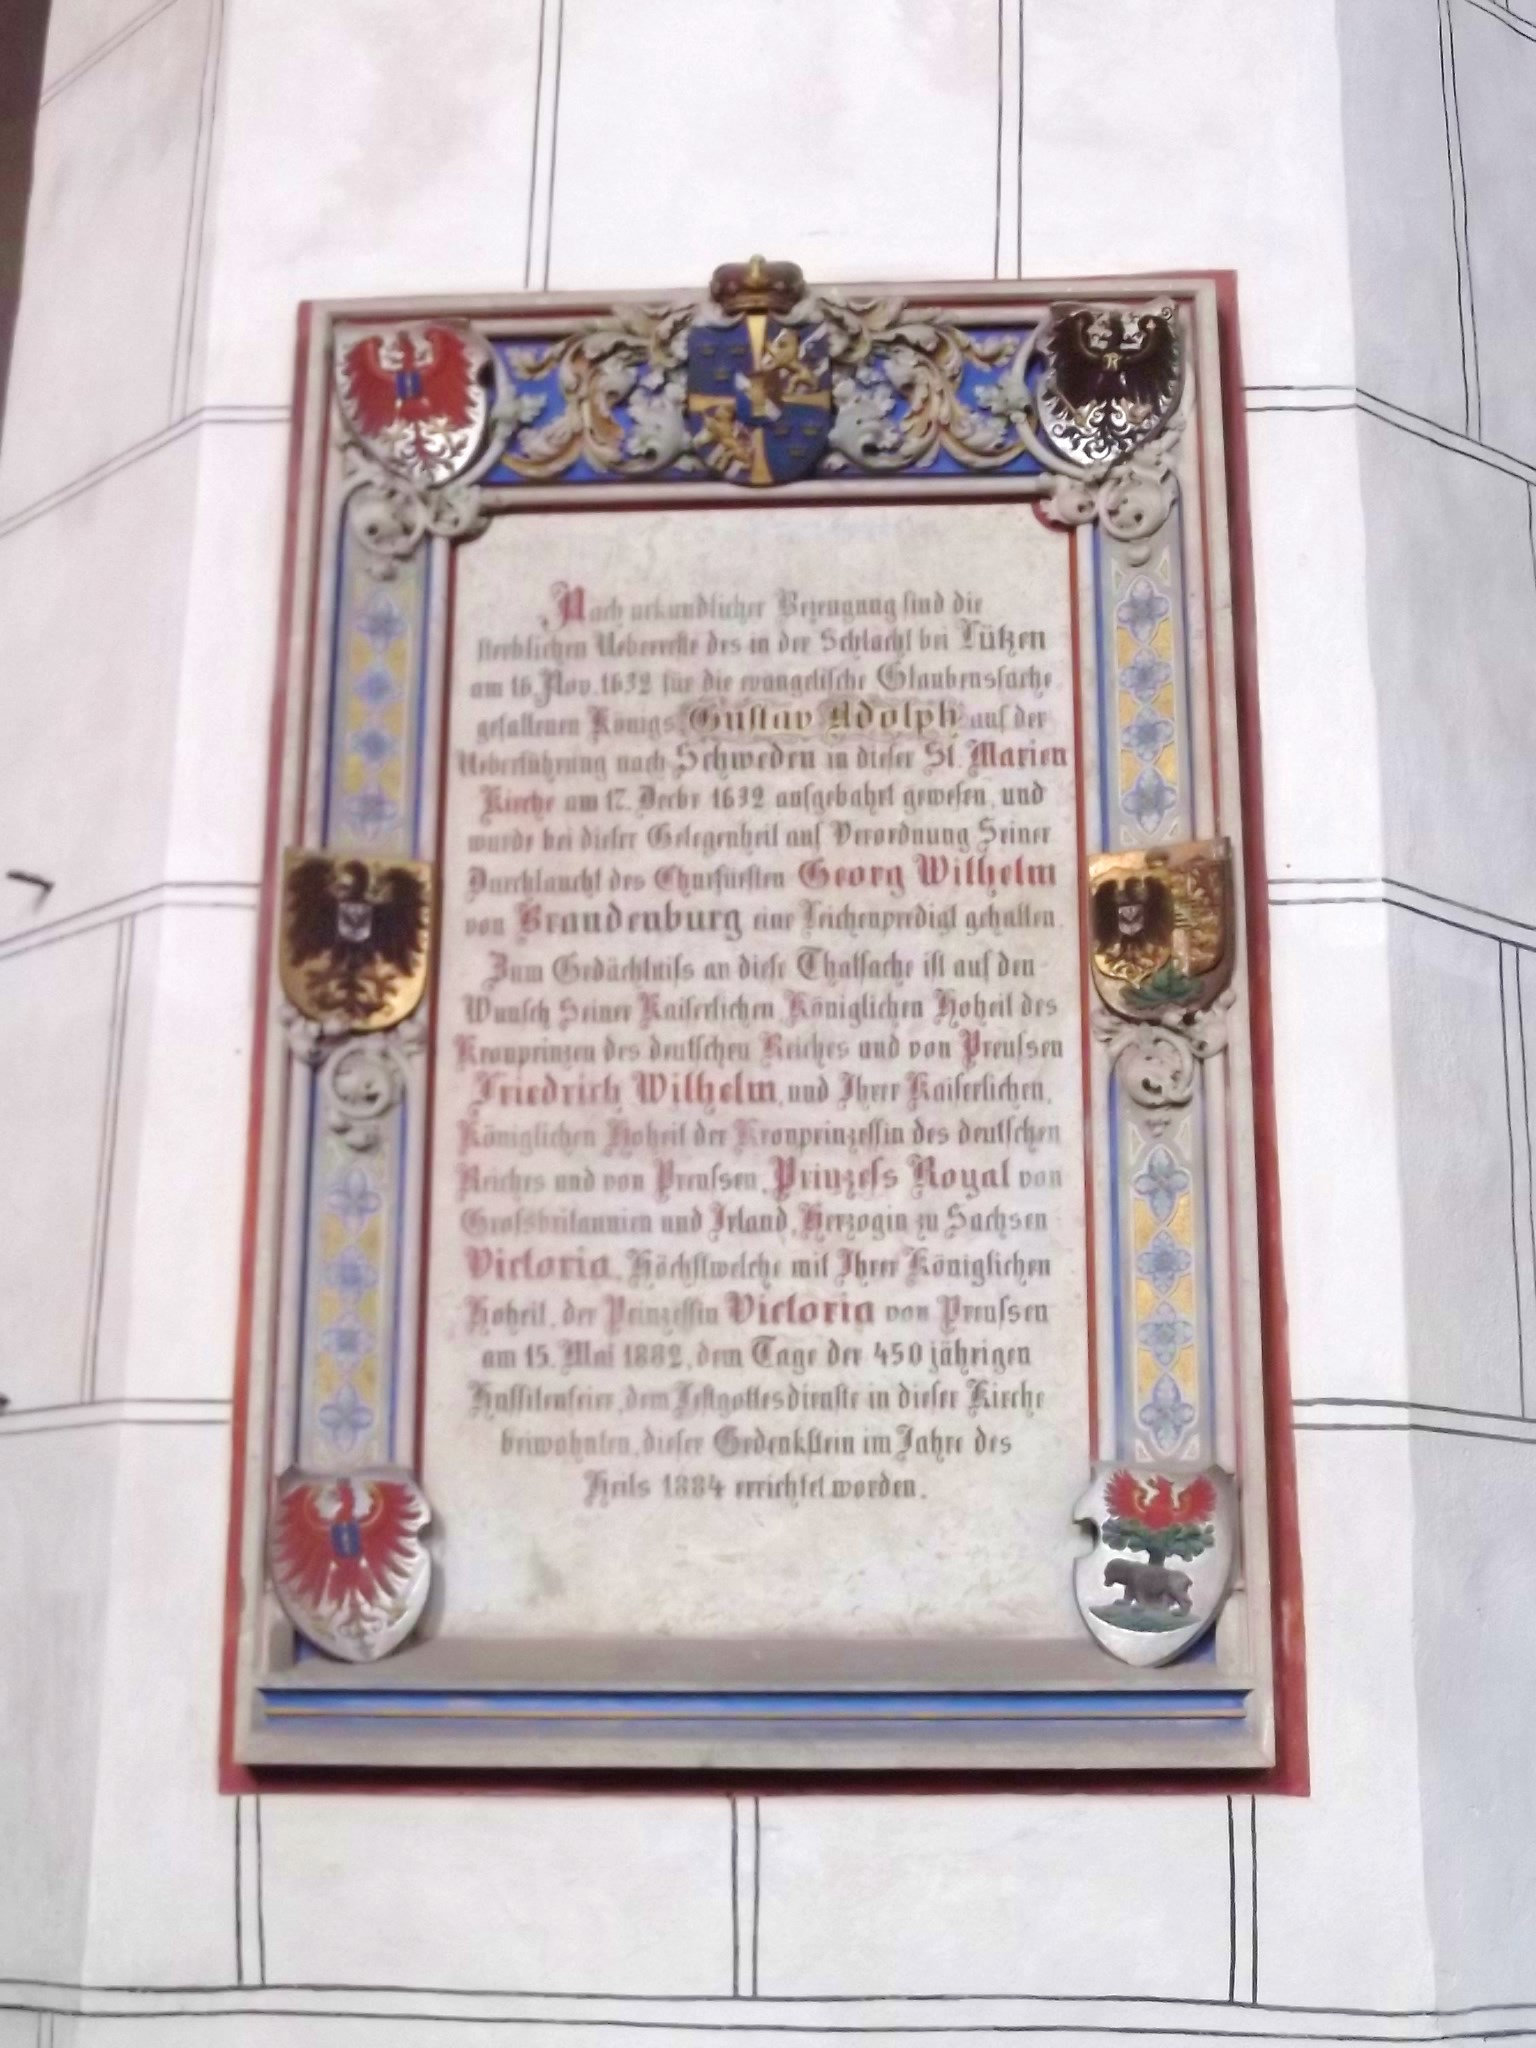 Nach urkundlicher Bezeugung sind die
sterblichen Ueberreste des in der Schlacht bei Lützen
am 16. Nov. 1632 für die evangelische Glaubenssache
gefallenen Königs Gustav Adolph auf der
Ueberführung nach Schweden in dieser St. Marien
Kirche am 17. Decbr 1632 aufgebahrt gewesen, und
wurde bei dieser Gelegenheit auf Verordnung Seiner
Durchlaucht des Churfürsten Georg Wilhelm
von Brandenburg eine Leichenpredigt gehalten.
Zum Gedächtniſs an diese Thatsache ist auf den
Wunsch Seiner Kaiserlichen, Königlichen Hoheit des
Kronprinzen des deutschen Reiches und von Preuſsen
Friedrich Wilhelm, und Ihrer Kaiserlichen,
Königlichen Hoheit der Kronprinzessin des deutschen
Reiches und von Preuſsen, Prinzeſs Royal von
Groſsbritannien und Irland, Herzogin zu Sachsen
Victoria, Höchstwelche mit Ihrer Königlichen
Hoheit, der Prinzessin Victoria von Preuſsen
am 15. Mai 1882, dem Tage der 450 jährigen
Hussitenfeier, dem Festgottesdienste in dieser Kirche
beiwohnten, dieser Gedenkstein im Jahre des
Heils 1884 errichtet worden.